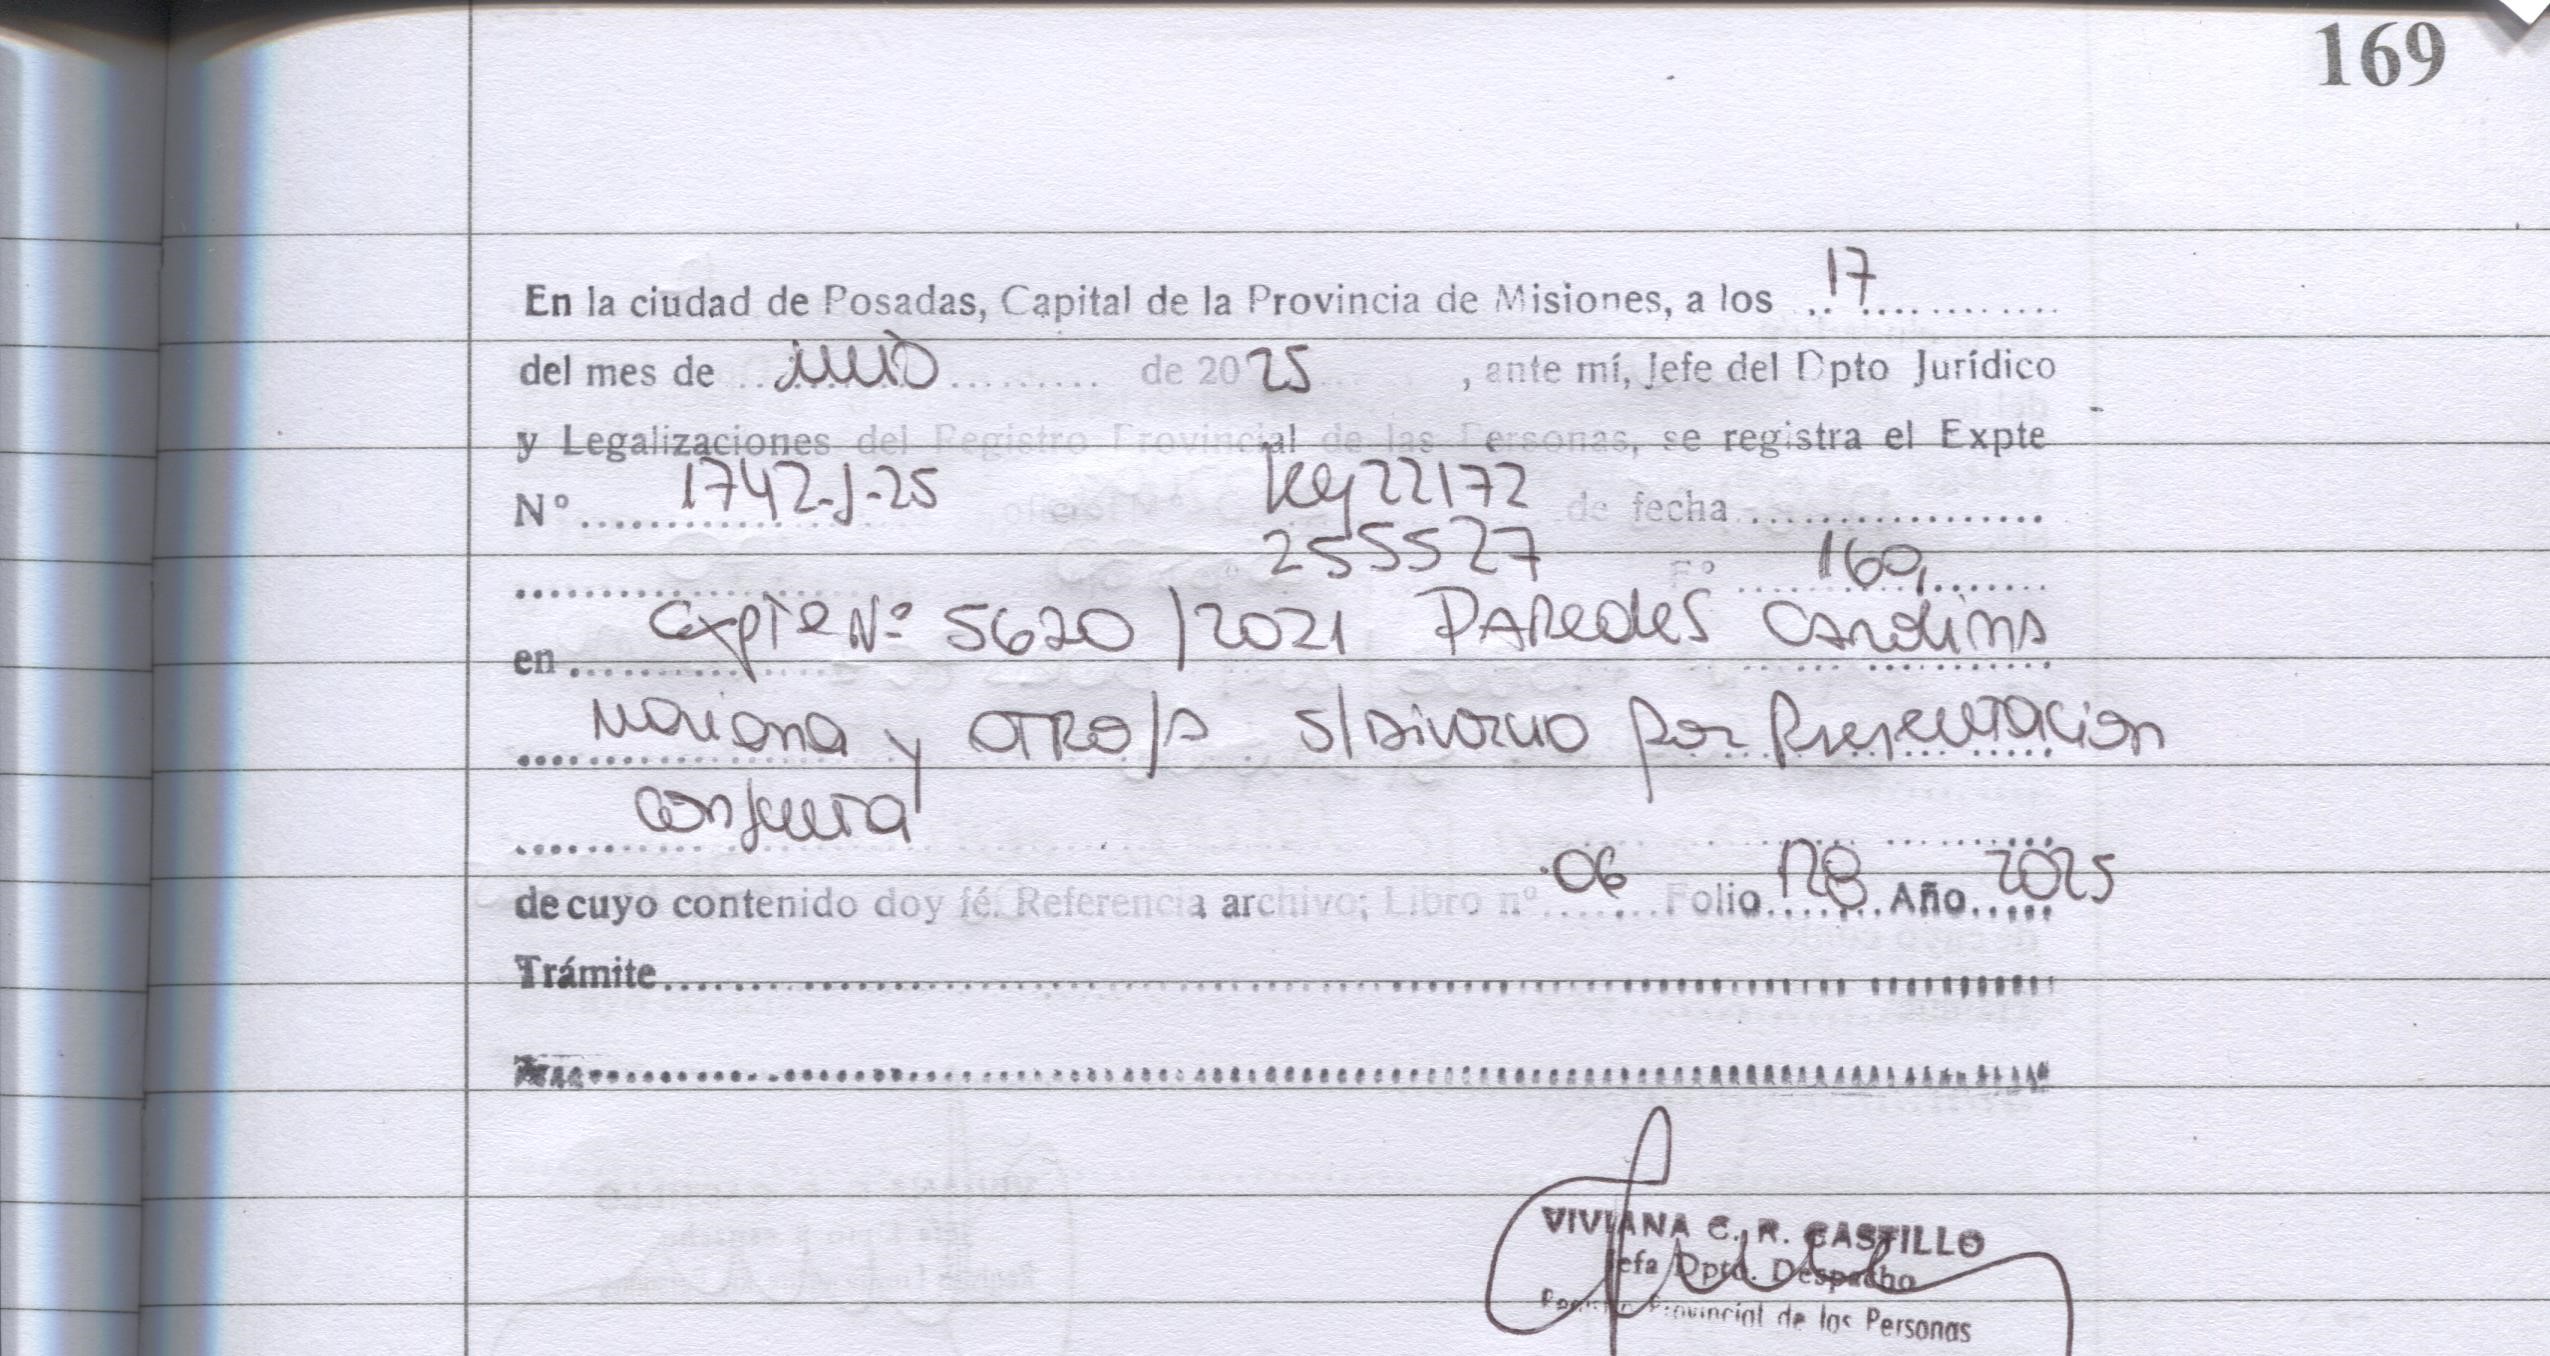 169
En la ciudad de Posadas, Capital de la Provincia de Misiones, a los ..17............
del mes de ............ de 2025 , ante mí, Jefe del Dpto Jurídico
y Legalizaciones del Registro Provincial de las Personas, se registra el Expte
Nº 1742-J-25 Ley 22172 de fecha ..................
255527 Fº 160
en Expte Nº 5620/2021 PAREDES CAROLINA
Mariana y OTRO/A S/DIVORCIO POR Presentacion
conjunta
de cuyo contenido doy fé. Referencia archivo; Libro nº 06 Folio 178 Año 2025
Trámite
VIVIANA C. R. CASTILLO
Jefa Dpto. Despacho
Registro Provincial de las Personas